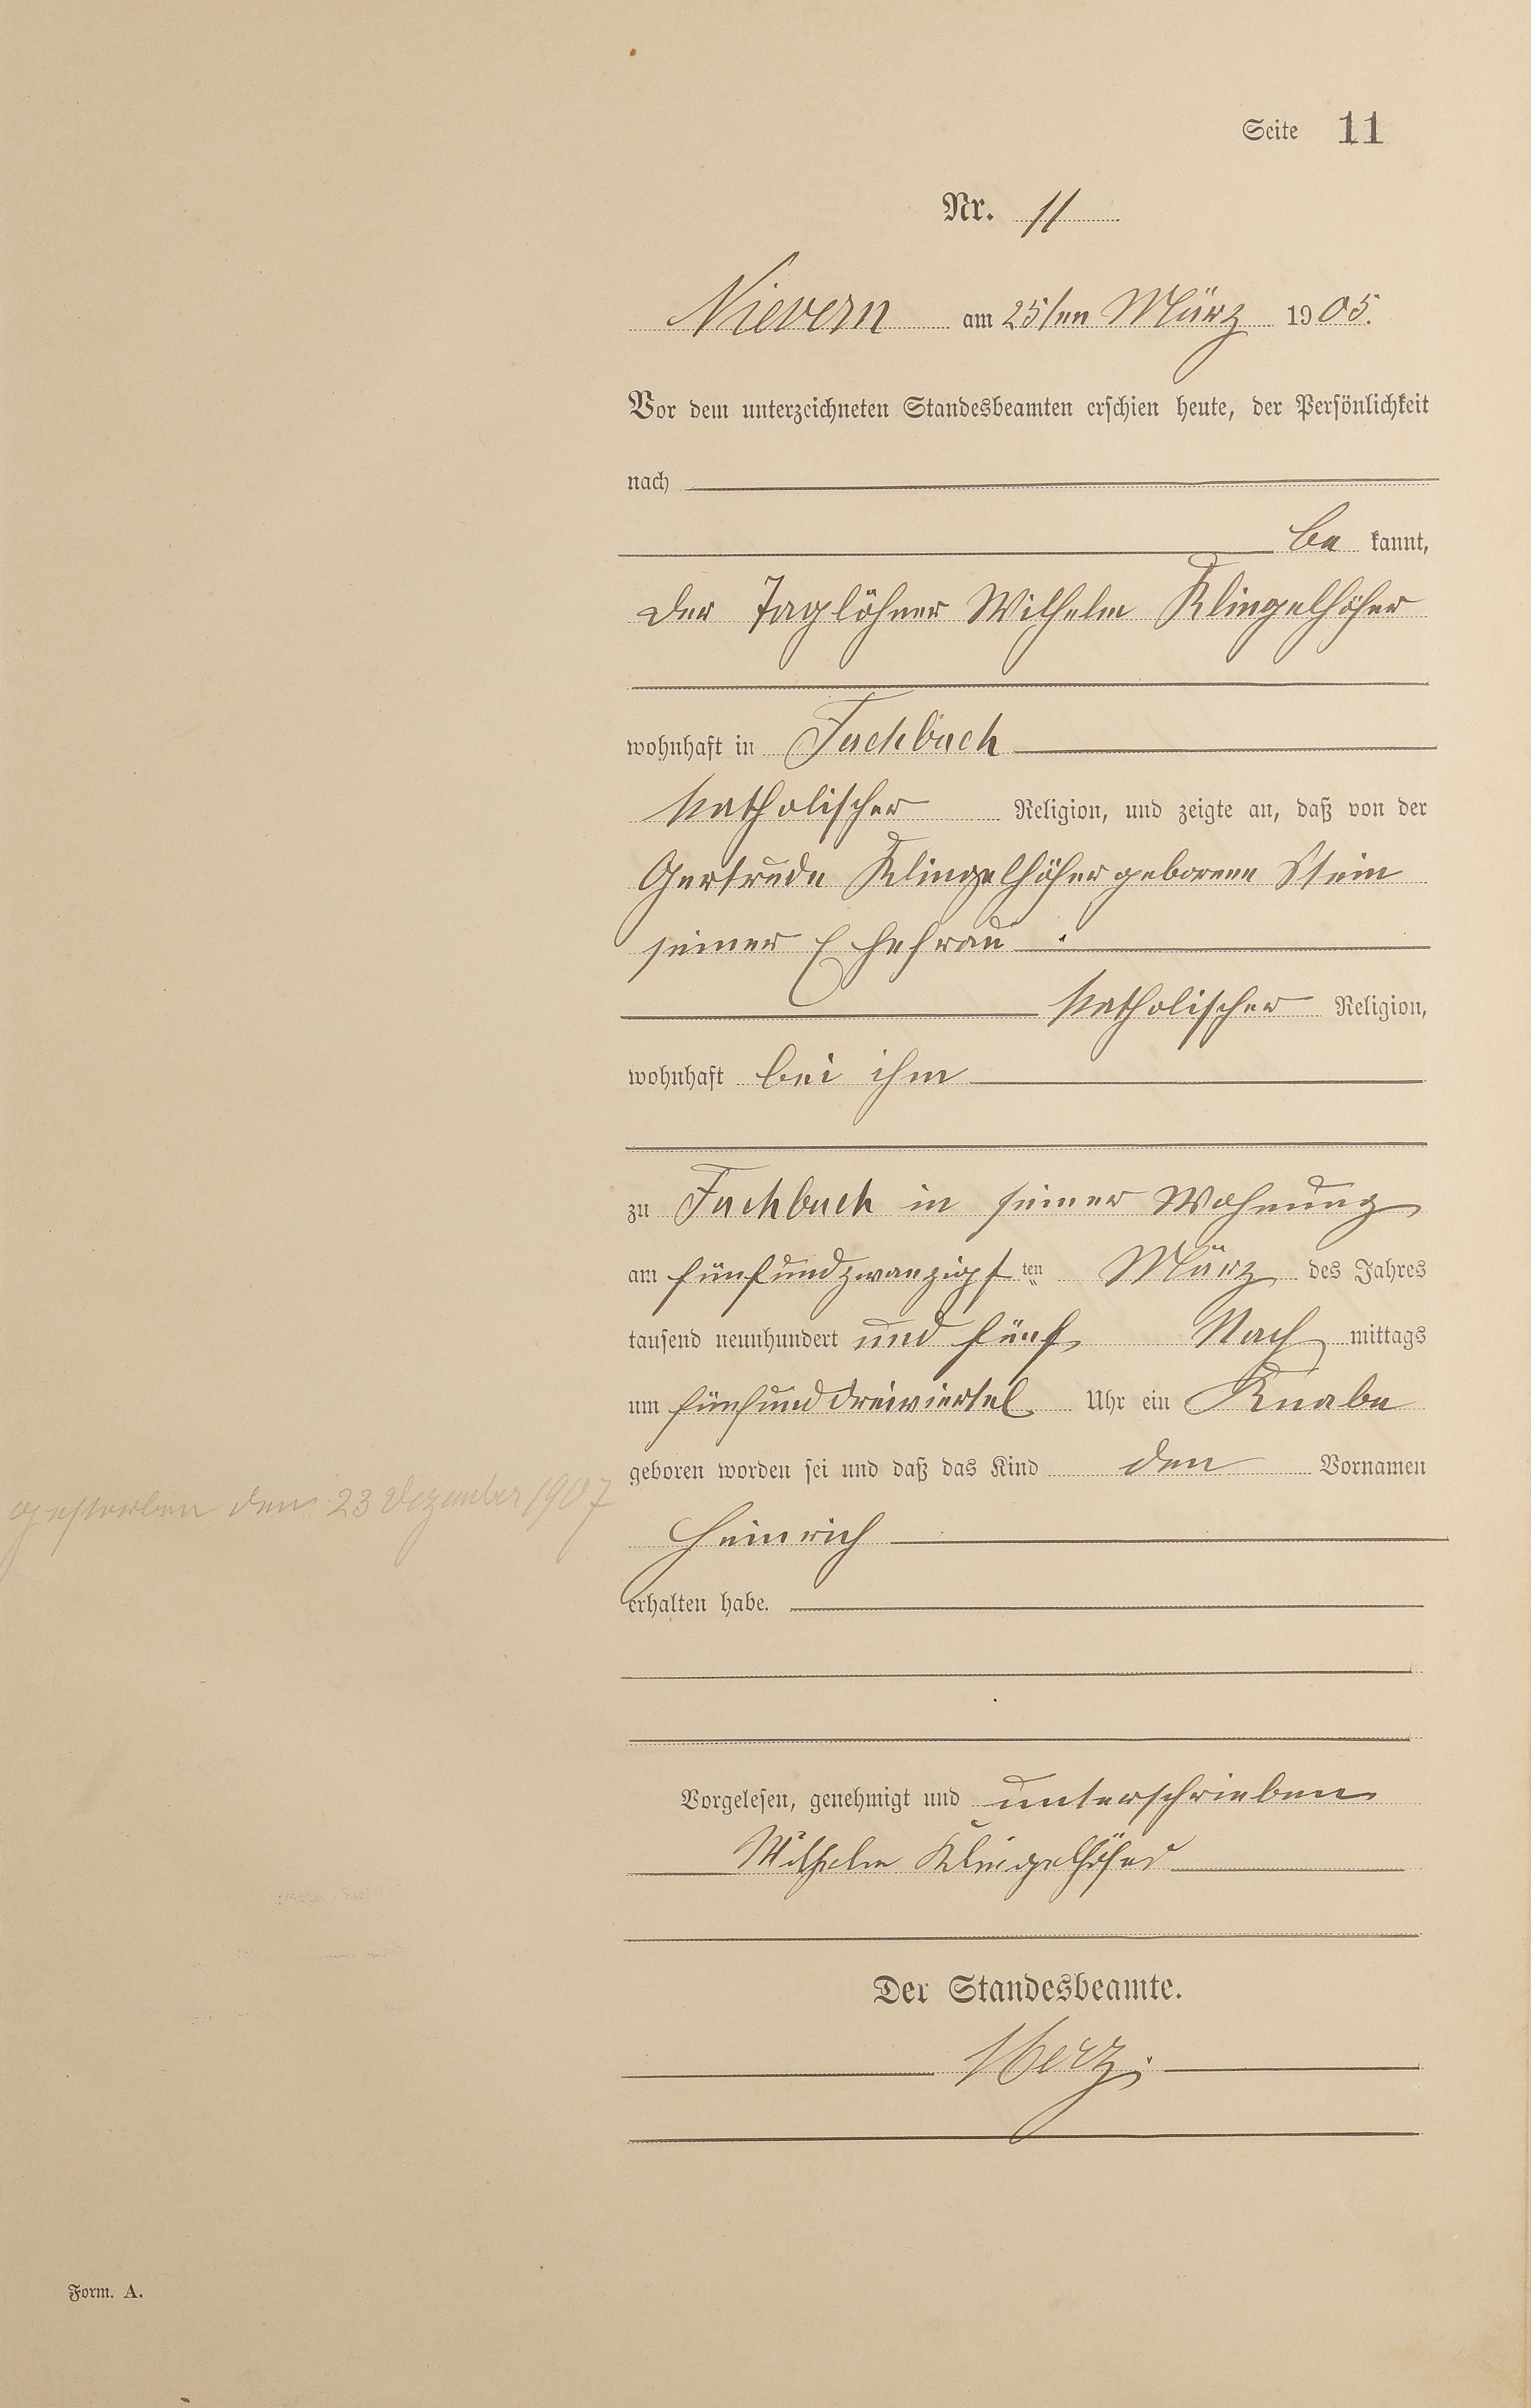 Seite 11
Nr. 11
Nievern am 25ten März 1905.
Vor dem unterzeichneten Standesbeamten erschien heute, der Persönlichkeit
nach
be kannt,
der Taglöhner Wilhelm Klingelhöfer
wohnhaft in Fachbach
katholischer Religion, und zeigte an, daß von der
Gertrude Klingelhöfer geborene Stein
seiner Ehefrau
katholischer Religion,
wohnhaft bei ihm
zu Fachbach in seiner Wohnung
am fünfundzwanzigsten März des Jahres
tausend neunhundert und fünf Nach mittags
um fünfunddreiviertel Uhr ein Knabe
geboren worden sei und daß das Kind den Vornamen
gestorben den 23 Dezember 1907
Heinrich
erhalten habe.
Vorgelesen, genehmigt und unterschrieben
Wilhelm Klingelhöfer
Der Standesbeamte.
Form. A.